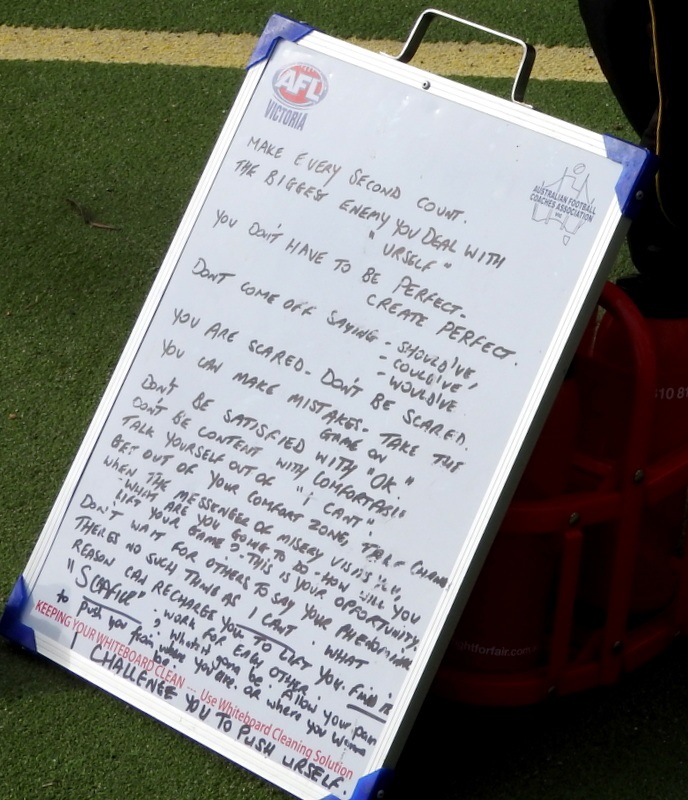 AFL
VICTORIA
AUSTRALIAN FOOTBALL
COACHES ASSOCIATION
MAKE EVERY SECOND COUNT.
THE BIGGEST ENEMY YOU DEAL WITH
"URSELF"
YOU DON'T HAVE TO BE PERFECT-
CREATE PERFECT.
DONT COME OFF SAYING - SHOULD'VE
- COULD'VE
- WOULD'VE
YOU ARE SCARED- DON'T BE SCARED.
YOU CAN MAKE MISTAKES- TAKE THE
GAME ON
DON'T BE SATISFIED WITH "OK."
DON'T BE CONTENT WITH COMFORTABLE
TALK YOURSELF OUT OF "I CANT"
GET OUT OF YOUR COMFORT ZONE, TAKE
WHEN THE MESSENGER OF MISERY VISITS YOU,
WHAT ARE YOU GOING TO DO. HOW WILL YOU
LIFT YOUR GAME? - THIS IS YOUR OPPORTUNITY.
DON'T WAIT FOR OTHERS TO SAY YOUR PHENOMENAL
THERES NO SUCH THING AS I CANT. WHAT
REASON CAN RECHARGE YOU TO LIFT YOU. FIND IT
WORK FOR EACH OTHER.
what's it gona be. Allow your pain
to push you from where you are. or where you wanna
be.
I CHALLENGE YOU TO PUSH URSELF.
KEEPING YOUR WHITEBOARD CLEAN ... Use Whiteboard Cleaning Solution
ghtforfair.com